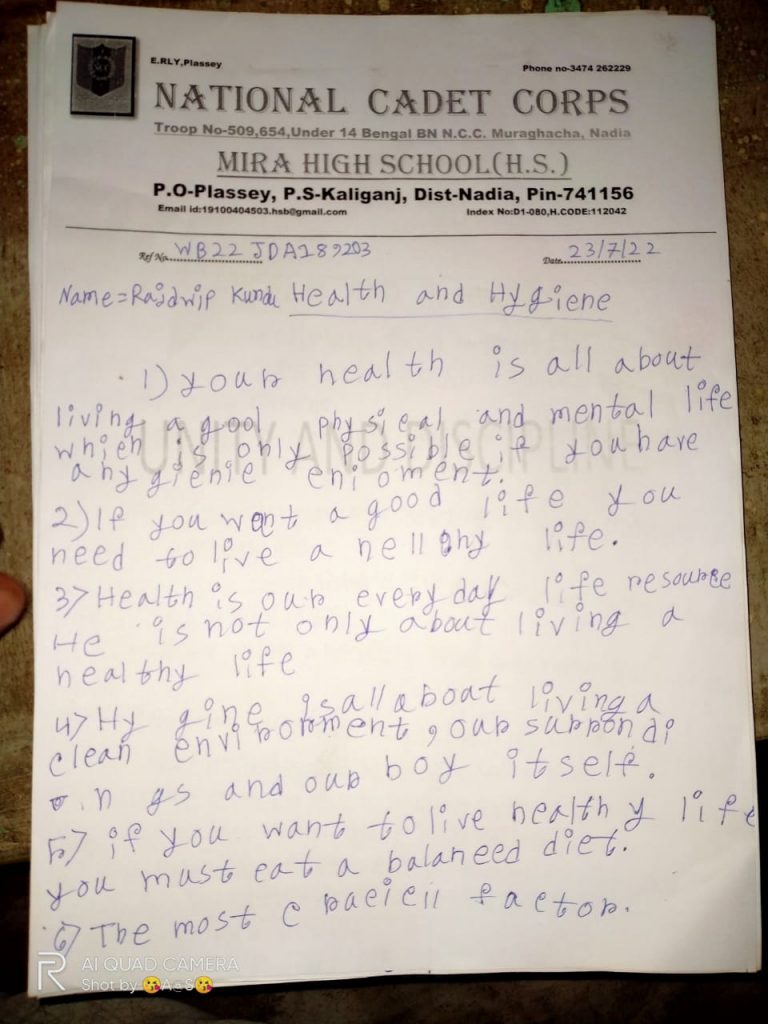 E.RLY,Plassey
Phone no-3474 262229
NATIONAL CADET CORPS
Troop No-509,654,Under 14 Bengal BN N.C.C. Muraghacha, Nadia
MIRA HIGH SCHOOL(H.S.)
P.O-Plassey, P.S-Kaliganj, Dist-Nadia, Pin-741156
Email id:19100404503.hsb@gmail.com Index No:D1-080,H.CODE:112042
Ref No. WB22 JDA189203 Date. 23/7/22
Name=Rajdwip Kundu Health and Hygiene
1) your health is all about
living a gool physical and mental life
which is only possible if you have
a hygienie enioment.
UNITY AND DISCIPLINE
2) If you want a good life you
need to live a hellthy life.
3> Health is our every day life resource
He is not only about living a
healthy life
4> Hy gine is all about living a
clean environment, our surrondi
n gs and our boy itself.
5> if you want to live healthy life
you must eat a balanced diet.
6> The most factor.
AI QUAD CAMERA
Shot by 😘A@S😘